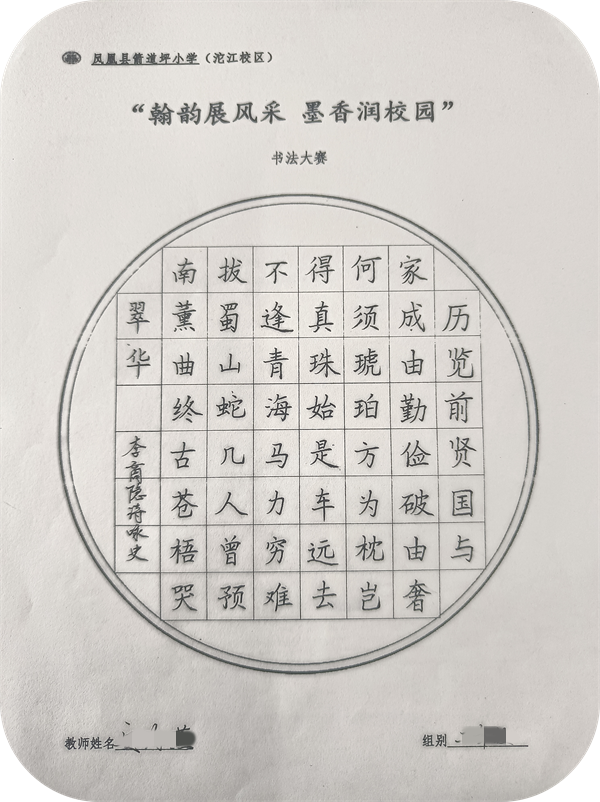 凤凰县箭道坪小学（沱江校区）
“翰韵展风采 墨香润校园”
书法大赛
历览前贤国与
家成由勤俭破由奢
何须琥珀方为枕岂
得真珠始是车远去
不逢青海马力穷难
拔蜀山蛇几人曾预
南薰曲终古苍梧哭
翠华
李商隐诗咏史
教师姓名
组别